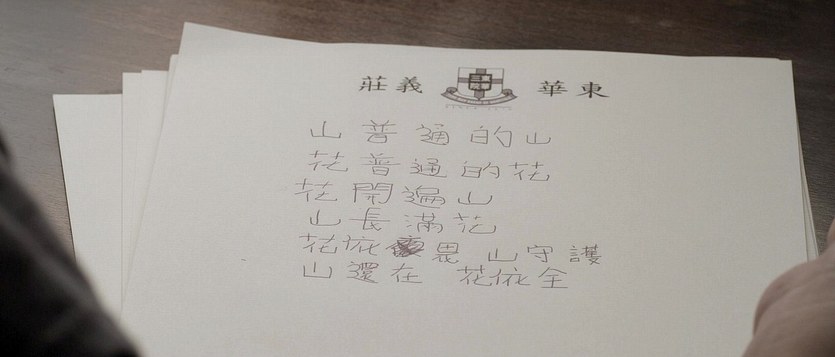 莊義 華東
山普通的山
花普通的花
花開遍山
山長滿花
花依畏 山守護
山還在 花依全